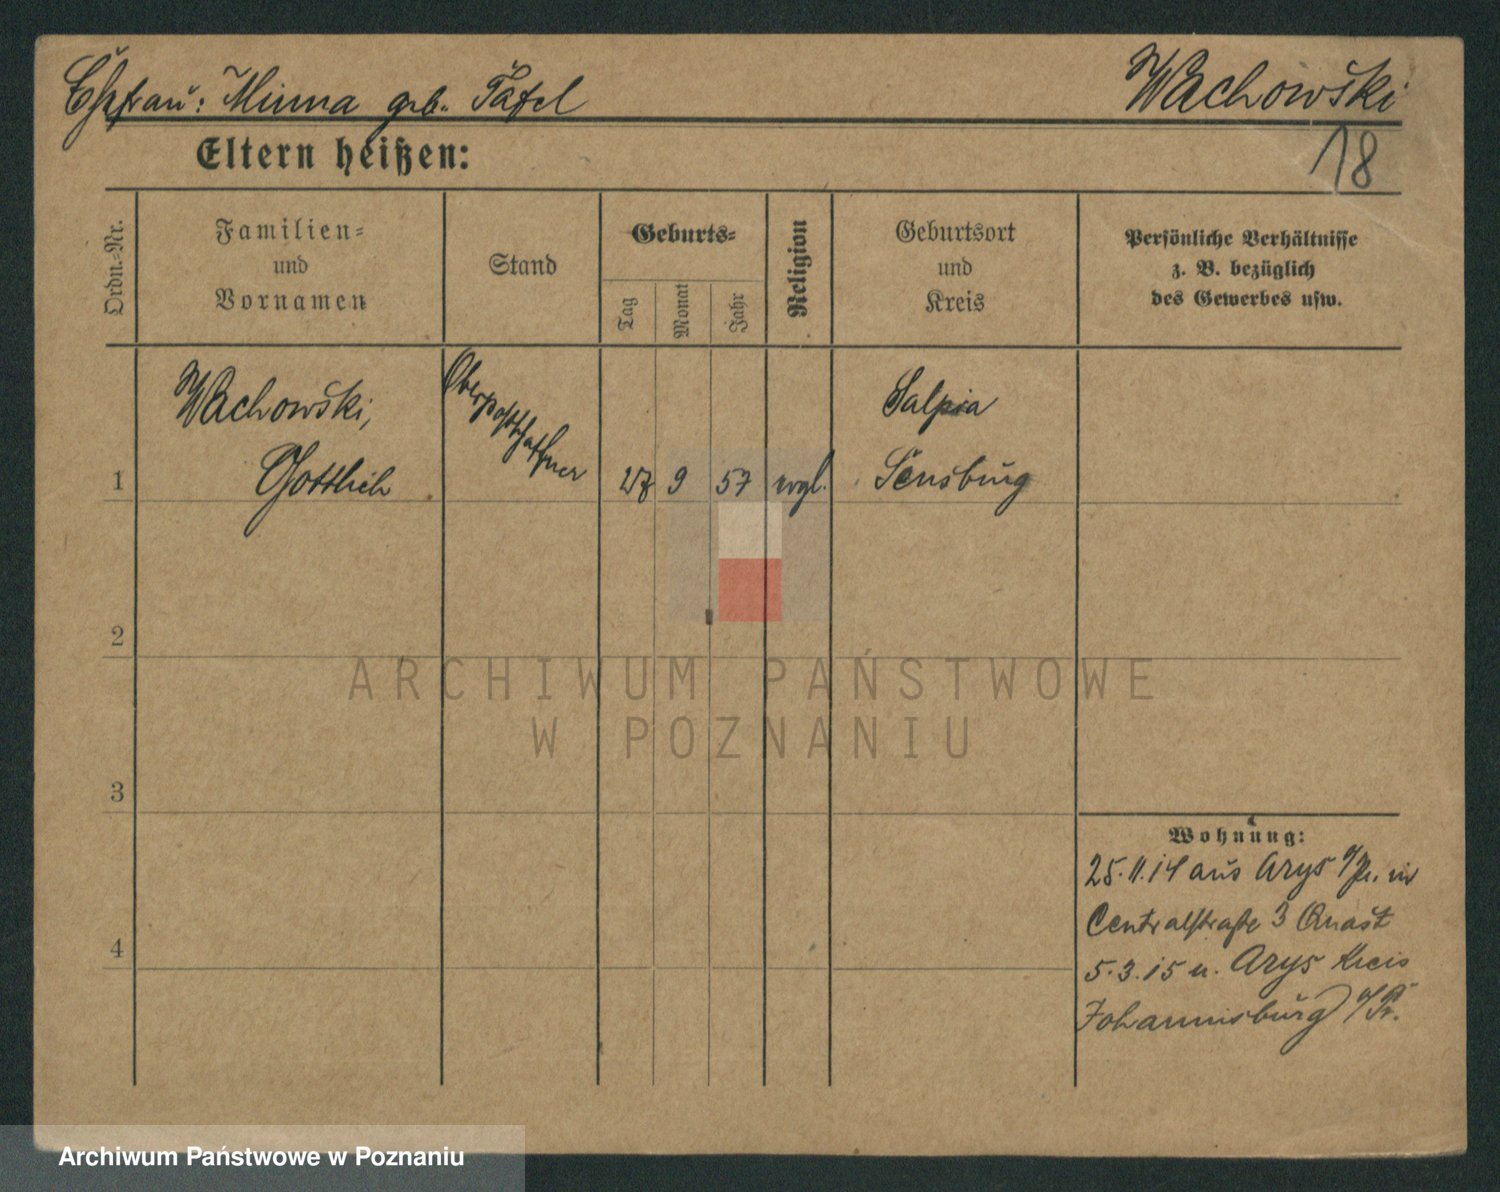 Ehefrau: Minna geb. Tafel
Wachowski
18
Eltern heißen:
Ordn.-Nr.
Familien-
und
Vornamen
Stand
Geburts-
Tag
Monat
Jahr
Religion
Geburtsort
und
Kreis
Persönliche Verhältnisse
z. B. bezüglich
des Gewerbes usw.
1
Wachowski,
Gottlieb
Oberpostschaffner
27 9 57 evgl.
Salpia
Sensburg
2
3
4
Wohnung:
25.11.14 aus Arys o/Pr. in
Centralstraße 3 Quast
5.3.15 n. Arys Kreis
Johannisburg o/Pr.
ARCHIWUM PAŃSTWOWE
W POZNANIU
Archiwum Państwowe w Poznaniu